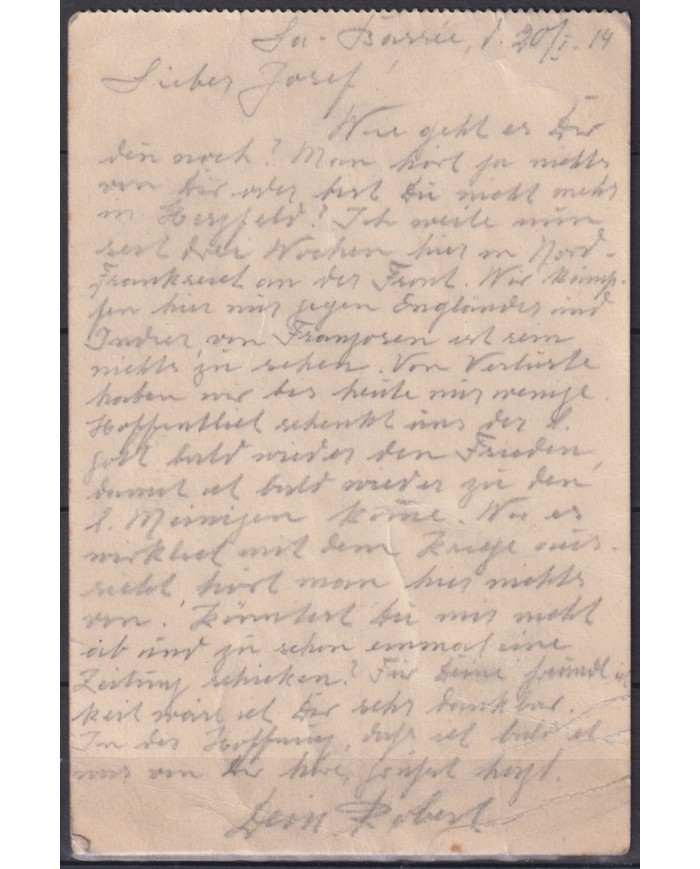 La-Bassée, d. 20/I. 14
Lieber Josef!
Wie geht es Dir
den noch? Man hört ja nichts
von Dir oder bist Du nicht mehr
in Herzfeld? Ich weile nun
seit drei Wochen hier in Nord-
Frankreich an der Front. Wir kämp-
fen hier nur gegen Engländer und
Indier, von Franzosen ist kein
nichts zu sehen. Von Verluste
haben wir bis heute nur wenige.
Hoffentlich schenkt uns der l.
Gott bald wieder den Frieden,
damit ich bald wieder zu den
l. Meinigen kome. Wie es
wirklich mit dem Kriege aus-
sieht hört man hier nichts
von. Könntest Du mir nicht
ab und zu schon einmal eine
Zeitung schicken? Für Deine freundlich
keit wäre ich Dir sehr dankbar.
In der Hoffnung, daß ich bald et
was von Dir höre, grüßt herzl.
Dein Robert